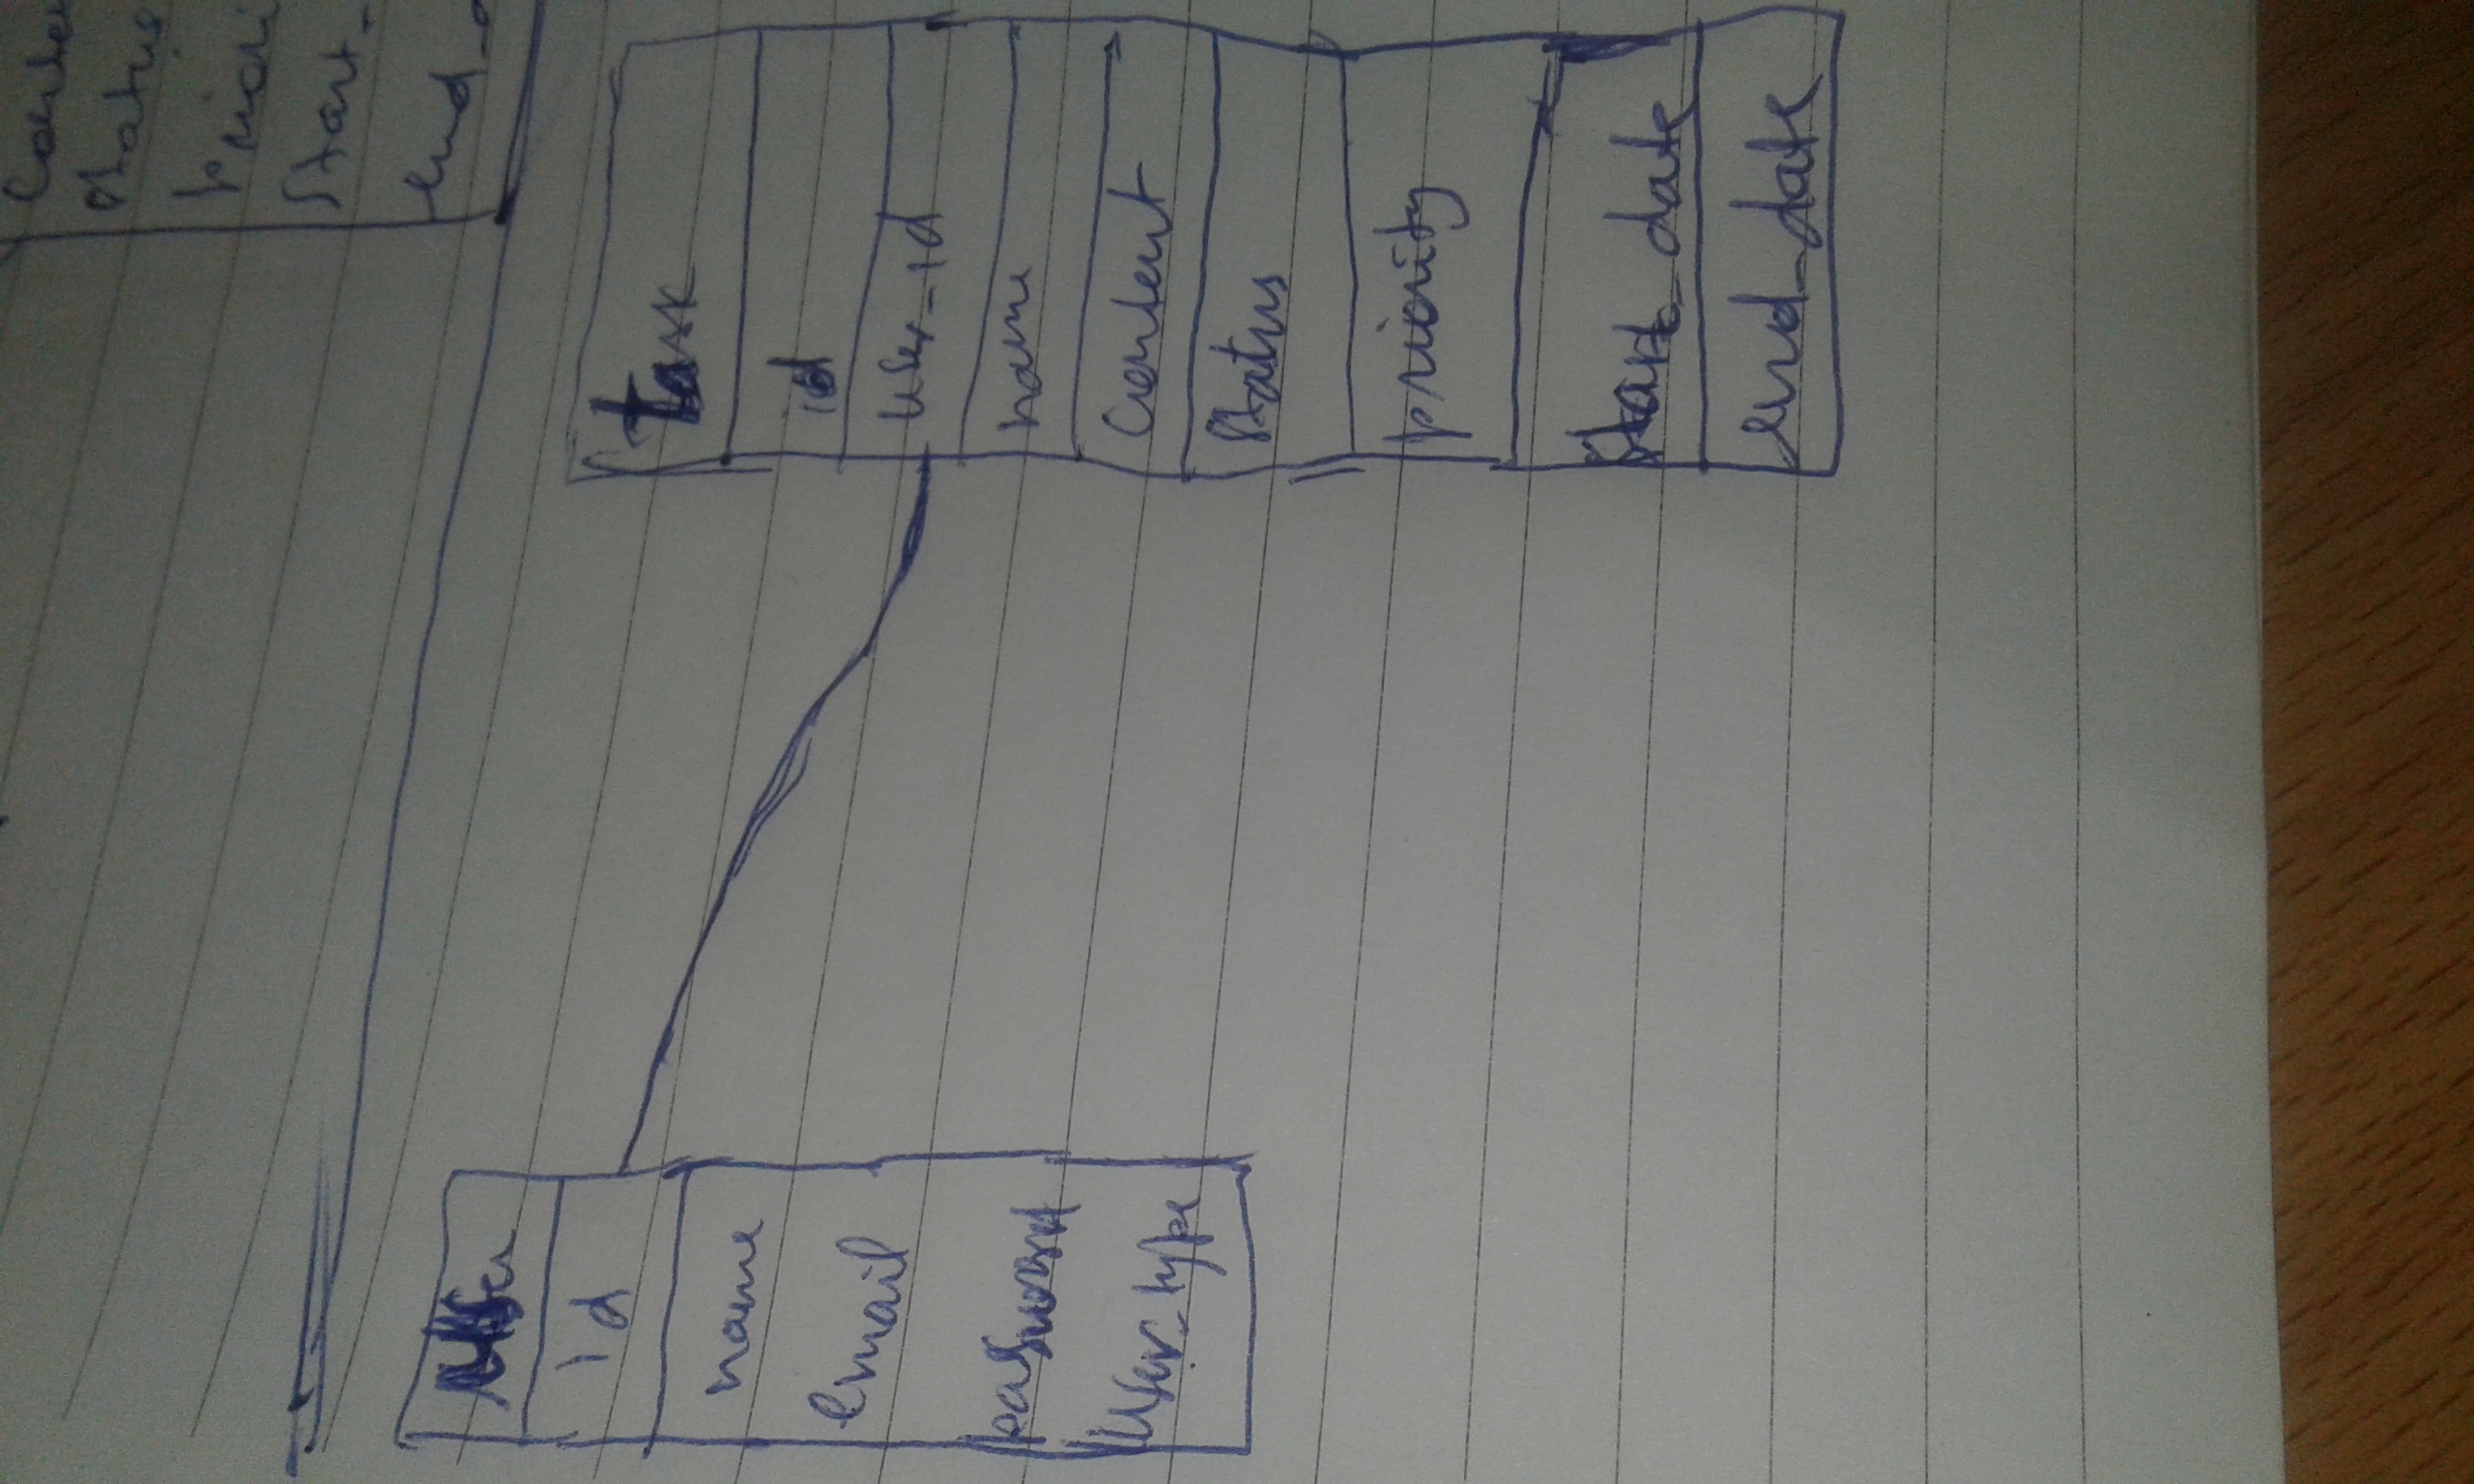 status
start_
user
id
name
email
password
user_type
task
id
user_id
name
content
status
priority
start_date
end_date